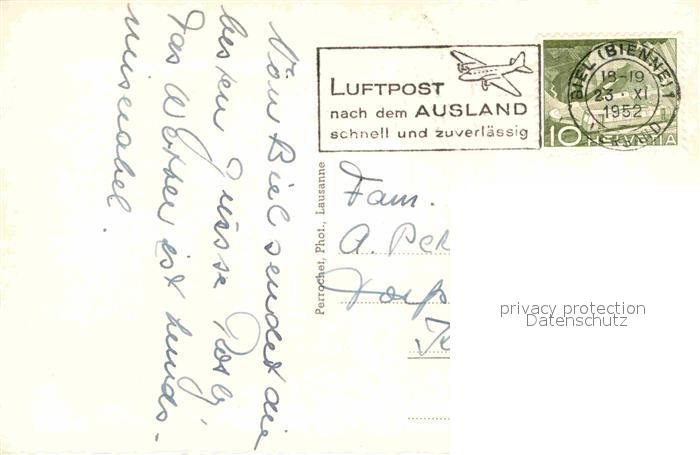 Von Biel sendet die
besten Grüsse
Das Wetter ist hunds-
miserabel.
Perrochet, Phot., Lausanne
LUFTPOST
nach dem AUSLAND
schnell und zuverlässig
BIEL (BIENNE) 1
18-19
23. XI
1952
10 HELVETIA
Fam.
A.
privacy protection
Datenschutz